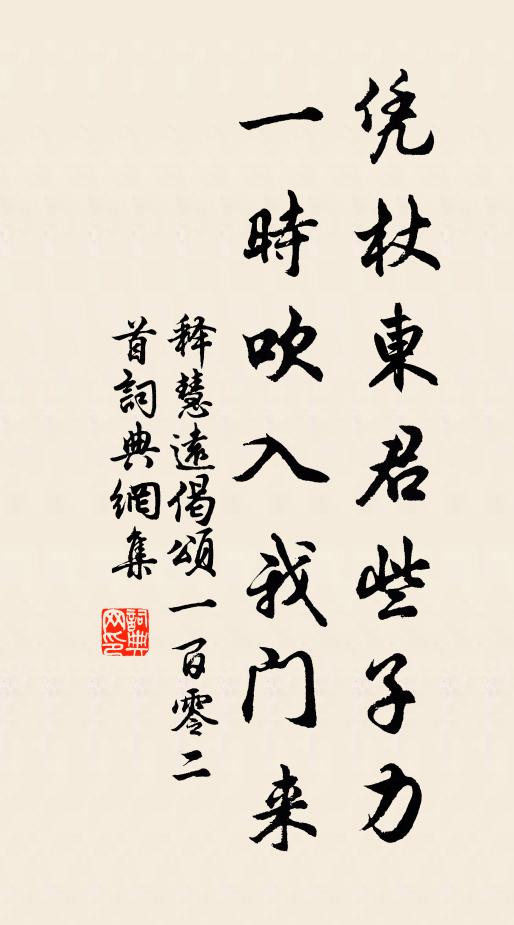 凭杖東君些子力
一時吹入我门来
释慧遠偈頌一百零二
首詞典網集
詞典网印